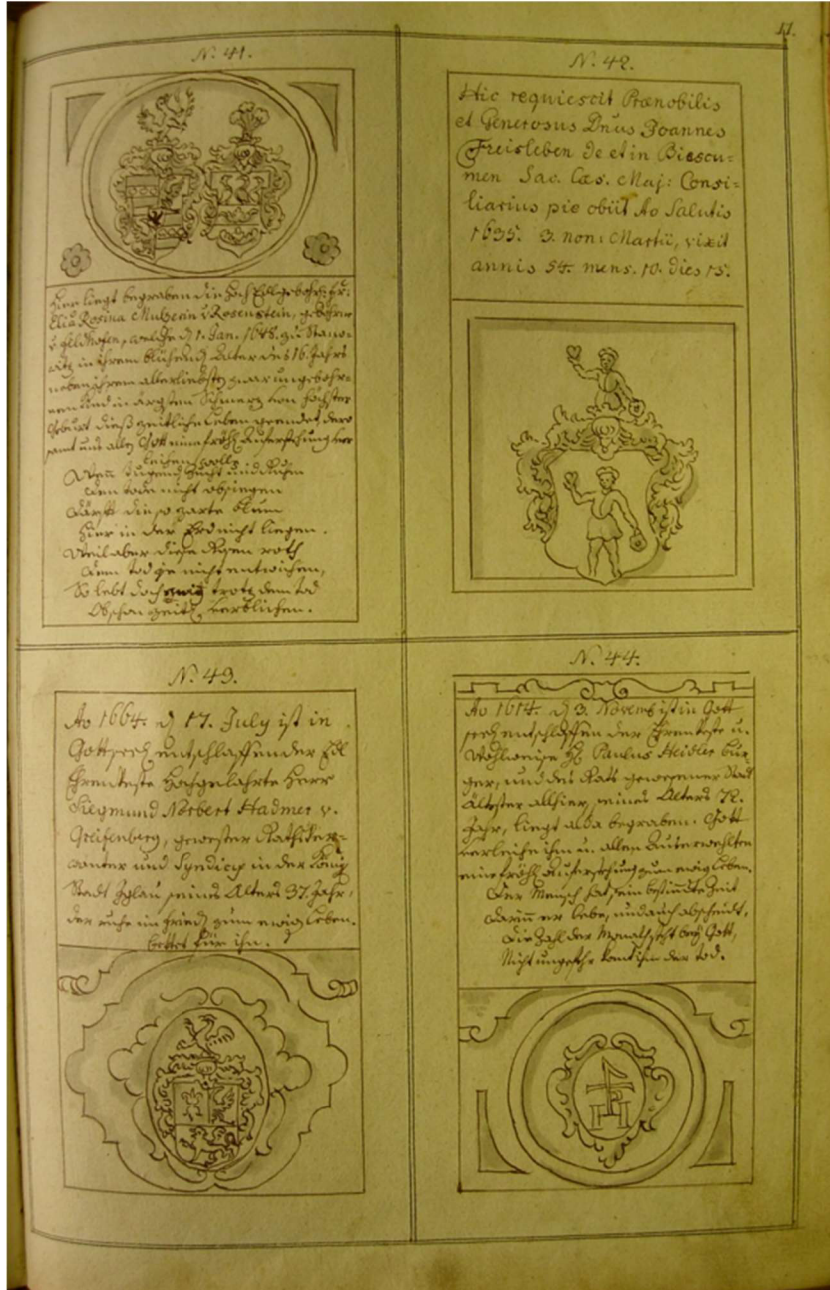 11.
N. 41.
Hier liegt begraben die Hoch Edlgebohrne Fr:
Elia Rosina Mulzerin v. Rosenstein, gebohrne
v. Geldhofen, welche d 1. Jan. 1688. zu Stano-
witz in ihrem blühend Alter des 16. Jahrs
neben ihrem allerliebsten zwar ungebohr-
nen Kind in ärgsten Schmerz von
Geburt dieß zeitliche Leben geendet, dero
samt uns allen Gott eine fröhl: Auferstehung ver-
leihen wolle.
Wenn Tugend Zucht und
dem Tode nicht obsiegen
dörfft diese zarte Blum
hier in der Erd nicht liegen.
Weil aber diese Rosen roth
dem Tod je nicht entwichen,
So lebt doch ewig trotz dem Tod
Obschon zeitl. verblichen.
N. 42.
Hic requiescit Prænobilis
et Generosus Dnus Joannes
Freisleben de et in Biescu-
men Sac. Cæs. Maj: Consi-
liarius pie obiit Ao Salutis
1635. 3. non: Martii, vixit
annis 54. mens. 10. dies 15.
N. 43.
Ao 1664. d 17. July ist in
Gott seel. entschlaffen der Edl
Ehrenveste Hochgelahrte Herr
Siegmund Norbert Hadmer v.
Greifenberg, gewester Rathsver-
wanter und Syndicus in der König.
Stadt Iglau seines Alters 37. Jahr,
der ruhe im Fried, zum ewig Leben.
bettet für ihn.
N. 44.
Ao 1614. d 3. Novemb ist in Gott
seel. entschlaffen der Ehrenveste u.
Wohlweise H. Paulus Heidler Bur-
ger, und des Rats gewesener Stadt
Ältester allhier, seines Alters 72.
Jahr, liegt alda begraben. Gott
verleihe ihm u. allen Auserwehlten
eine fröhl. Auferstehung zum ewig Leben.
Der Mensch hat sein bestimdte Zeit
darinn er lebe, und auch abscheidt,
die Zahl der Monath steht bey Gott,
Nicht ungefehr komt ihm der Tod.